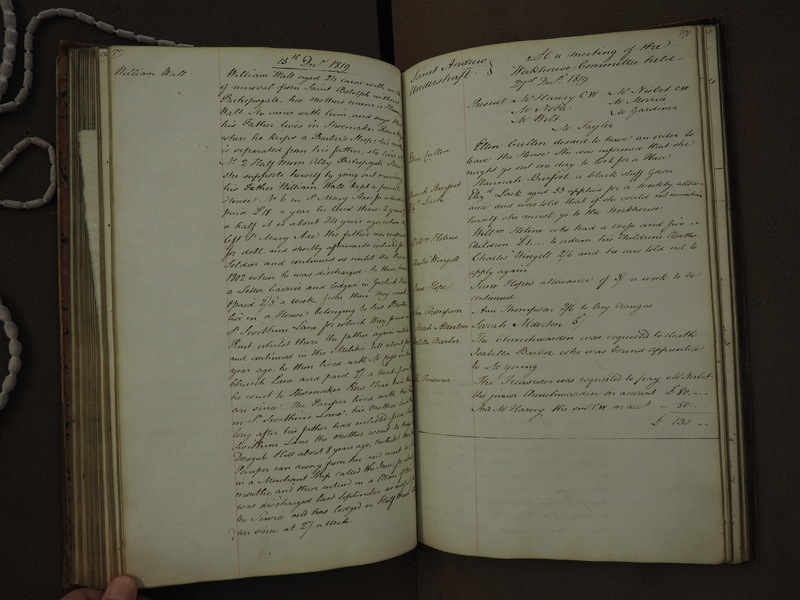 15th Decr 1819
William Wall
William Wall aged 24 came with an
of removal from Saint Botolph without
Bishopsgate, his mothers name is
Wall. She came with him and says that
his Father lives in Shoemaker Row
where he keeps a Barber's Shop; his
is separated from his father, she lives at
No. 2 Half Moon Alley Bishopsgate Street
she supports herself by going out nursing
his Father William Wall kept a
House No 6 in St Mary Axe for which he
paid £18 a year he lived there 2 years
a half, it is about 24 years ago, when he
left St Mary Axe the father was
for debt, and shortly afterwards inlisted for
Soldier and continued so until the
1802 when he was discharged. he then
a Letter Carrier and lodged in Garlick
& paid 2/3d a week, from there they went
live in a House belonging to his
St Swithins Lane for which they paid
Rent. whilst there the father again
and continued in the till about
year ago. he then lived with Mr in
Church Lane and paid 2/ a week from
he went to Shoemaker Row & has lived
ever since. The Pauper lived with his
in St Swithins Lane, his Mother lived
long after his father had inlisted, from
Swithins Lane the mother went to
Dowgate Hill about 8 years ago, & whilst there
Pauper ran away from her and went to
in a Merchant Ship called the
months and then entered in a Man of
was discharged last September as unfit
the Service and has lodged in Half Moon
ever since at 2/ a Week.
177
Saint Andrew
Undershaft
At a meeting of the
Workhouse Committee held
29th Decr 1819
Present Mr Harvey CW Mr Nisbet CW
Mr Noble Mr Morrice
Mr Webb Mr Gardiner
Mr Taylor
Ellen Cullen
Ellen Cullen desired to have an order to
leave the House. She was informed that she
might go out one day to look for a Place
Hannah a black stuff Gown
Lack
Elizth Lack aged 33 applied for a weekly allow
ance, and was told that if she could not maintain
herself she must go to the Workhouse
Willm Helene
Willm Helene who had a wife and five
Children £1 to redeem his Childrens Cloaths
Charles Wingell
Charles Wingell 2/6 and he was told not to
apply again
Jane Hope
Jane Hopes allowance of 3/ a week to be
continued
Ann Thompson
Ann Thompson 2/6 to buy oranges
Sarah Alderton
Sarah Alderton 5/
Isabella Barber
The Churchwarden was requested to cloath
Isabella Barber who was bound apprentice
to Mr Young
The Treasurer
The Treasurer was requested to pay Mr Nisbet
the junior Churchwarden on account £80
And Mr Harvey the CW on acct 50
£ 130